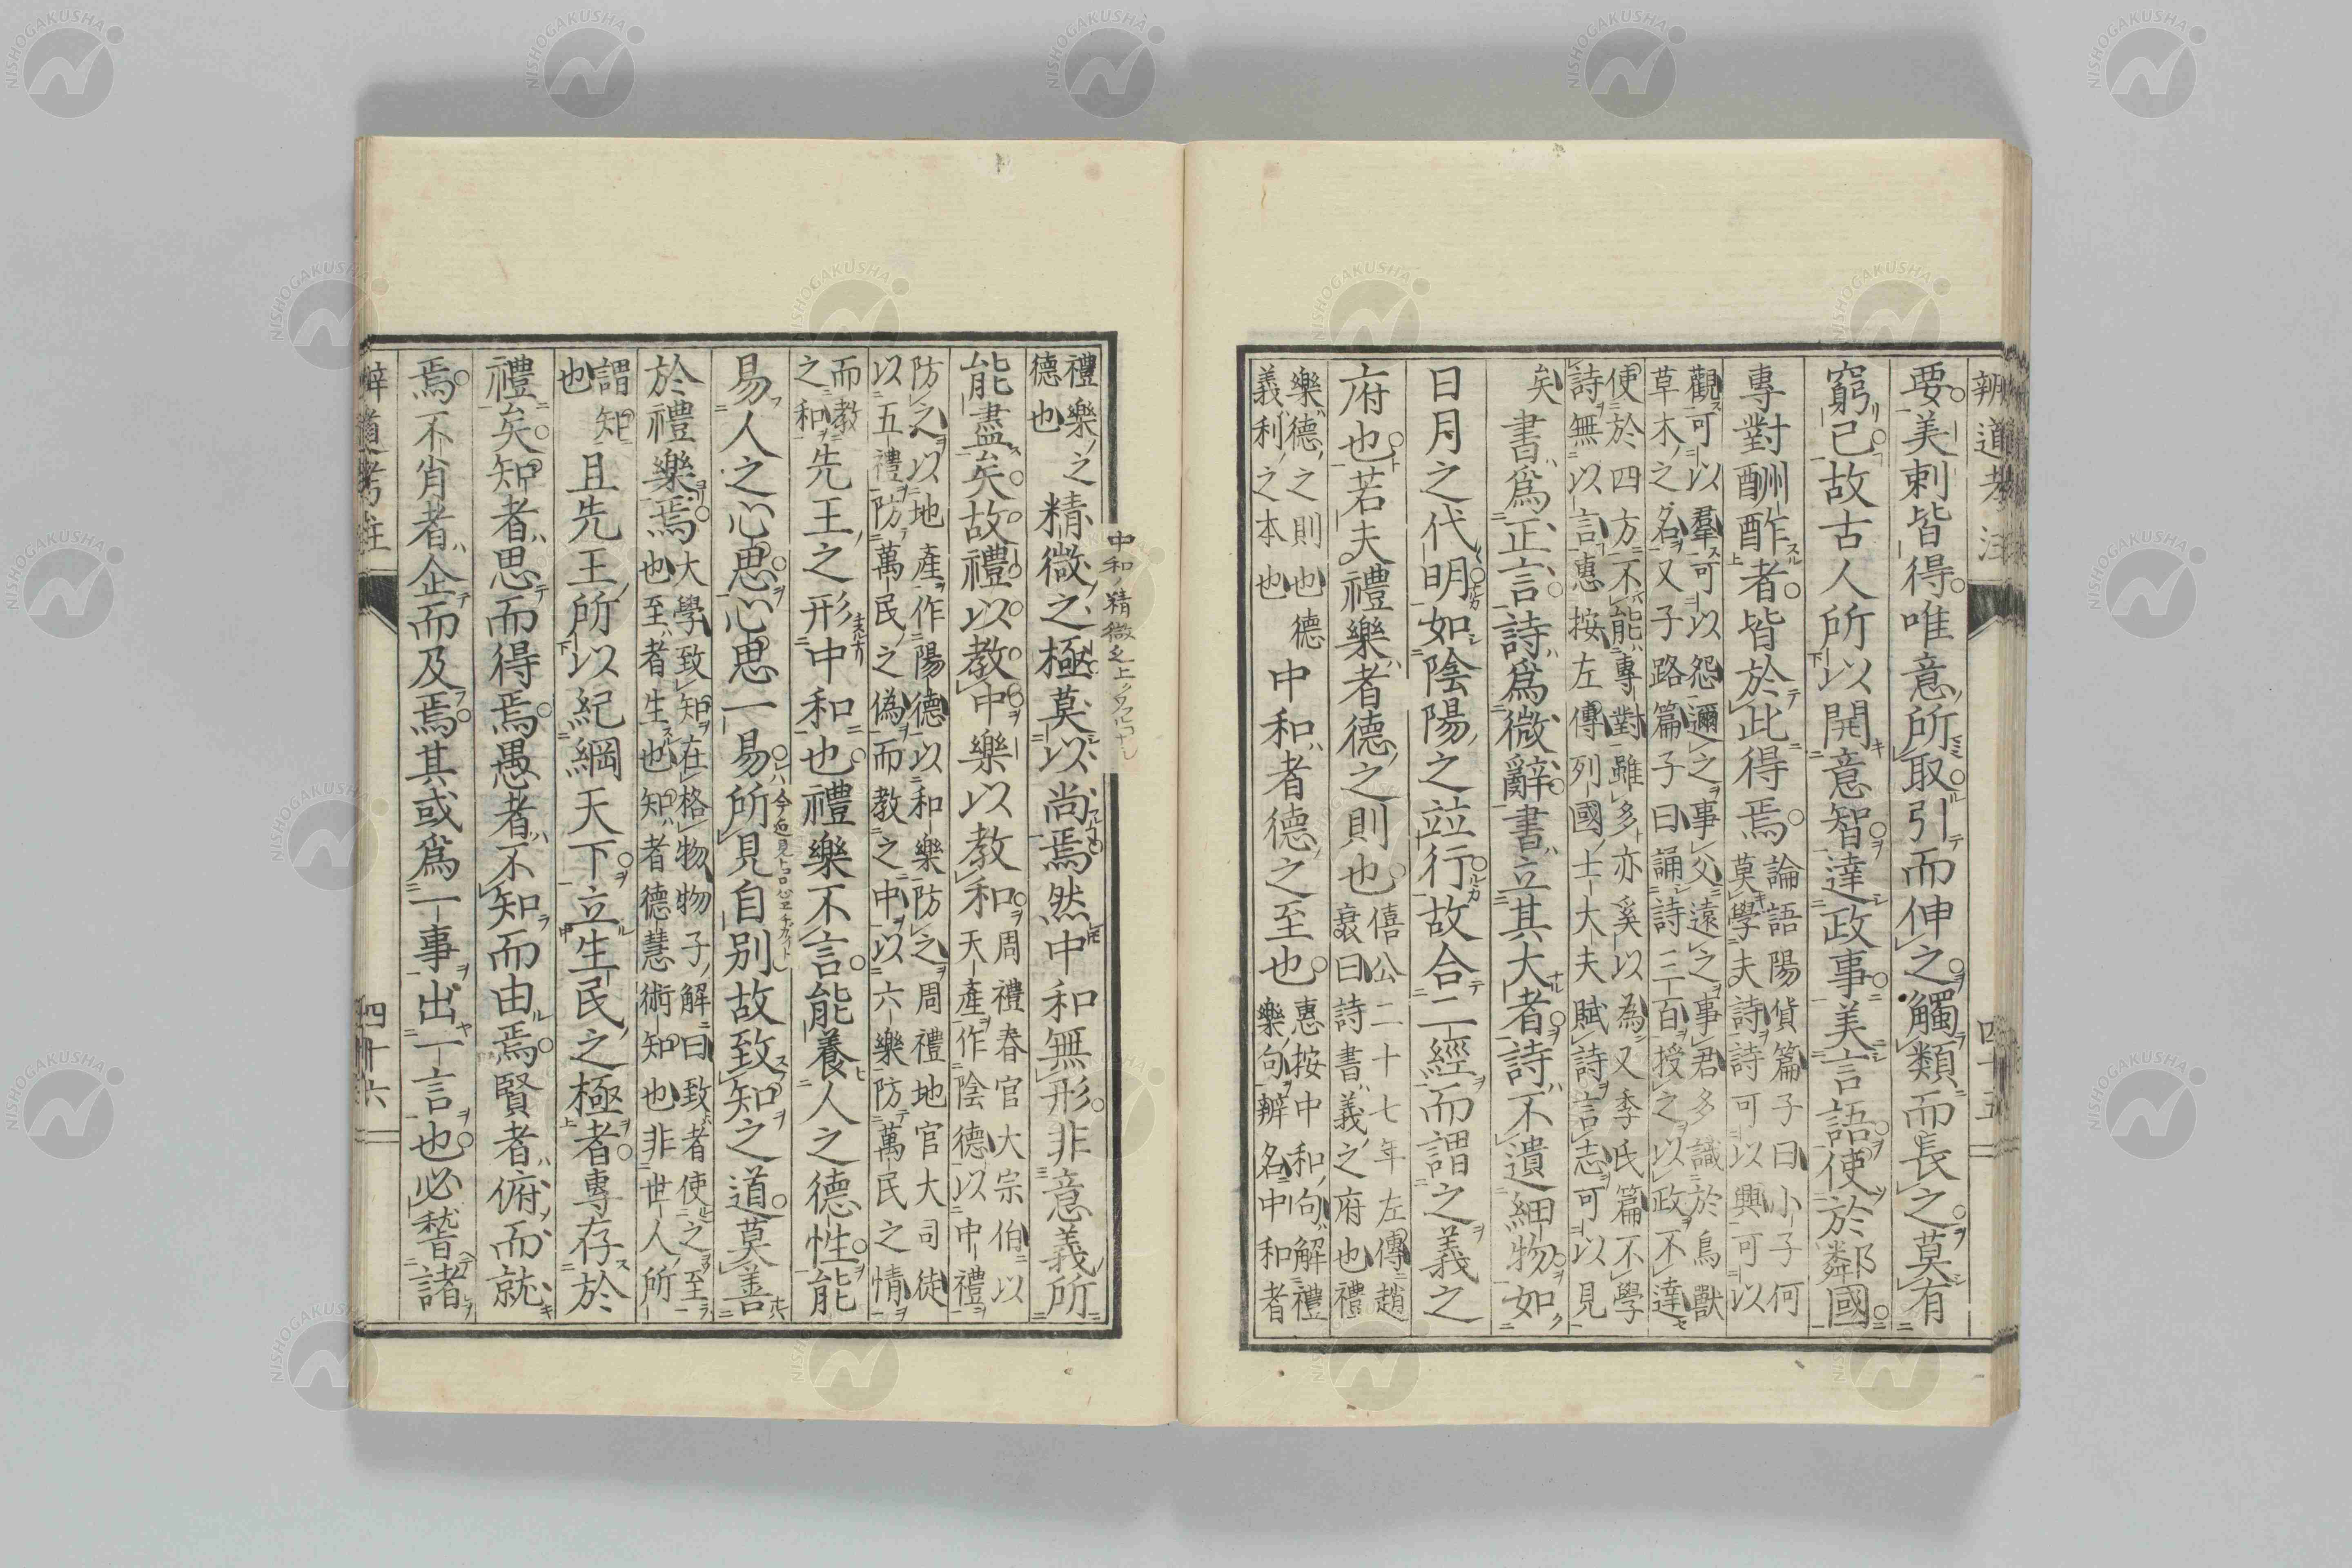 辨道考注 四十五
要美刺皆得唯意所取引而伸之觸類而長之莫有
窮已故古人所以開意智達政事美言語使於鄰國
專對酬酢者皆於此得焉
論語陽貨篇子曰小子何
莫學夫詩詩可以興可以
觀可以羣可以怨邇之事父遠之事君多識於鳥獸
草木之名又子路篇子曰誦詩三百授之以政不達
使於四方不能專對雖多亦奚以為又季氏篇不學
詩無以言惠按左傳列國士大夫賦詩言志可以見
矣
書爲正言詩爲微辭書立其大者詩不遺細物如
日月之代明如陰陽之竝行故合二經而謂之義之
府也若夫禮樂者德之則也
僖公二十七年左傳趙
衰曰詩書義之府也禮
樂德之則也德
義利之本也
中和者德之至也
惠按中和句解禮
樂句辨名中和者
禮樂之
德也
精微之極莫以尚焉然中和無形非意義所
中和ノ精微之上ノ
能盡矣故禮以教中樂以教和
周禮春官大宗伯以
天產作陰德以中禮
防之以地產作陽德以和樂防之周禮地官大司徒
以五禮防萬民之偽而教之中以六樂防萬民之情
而教
之和
先王之形中和也禮樂不言能養人之德性能
易人之心思心思一易所見自別故致知之道莫善
於禮樂焉
大學致知在格物物子解曰致者使之至
也至者生也知者德慧術知也非世人所
謂知
也
且先王所以紀綱天下立生民之極者專存於
禮矣知者思而得焉愚者不知而由焉賢者俯而就
焉不肖者企而及焉其或爲一事出一言也必稽諸
辨道考註 四十六
NISHOGAKUSHA